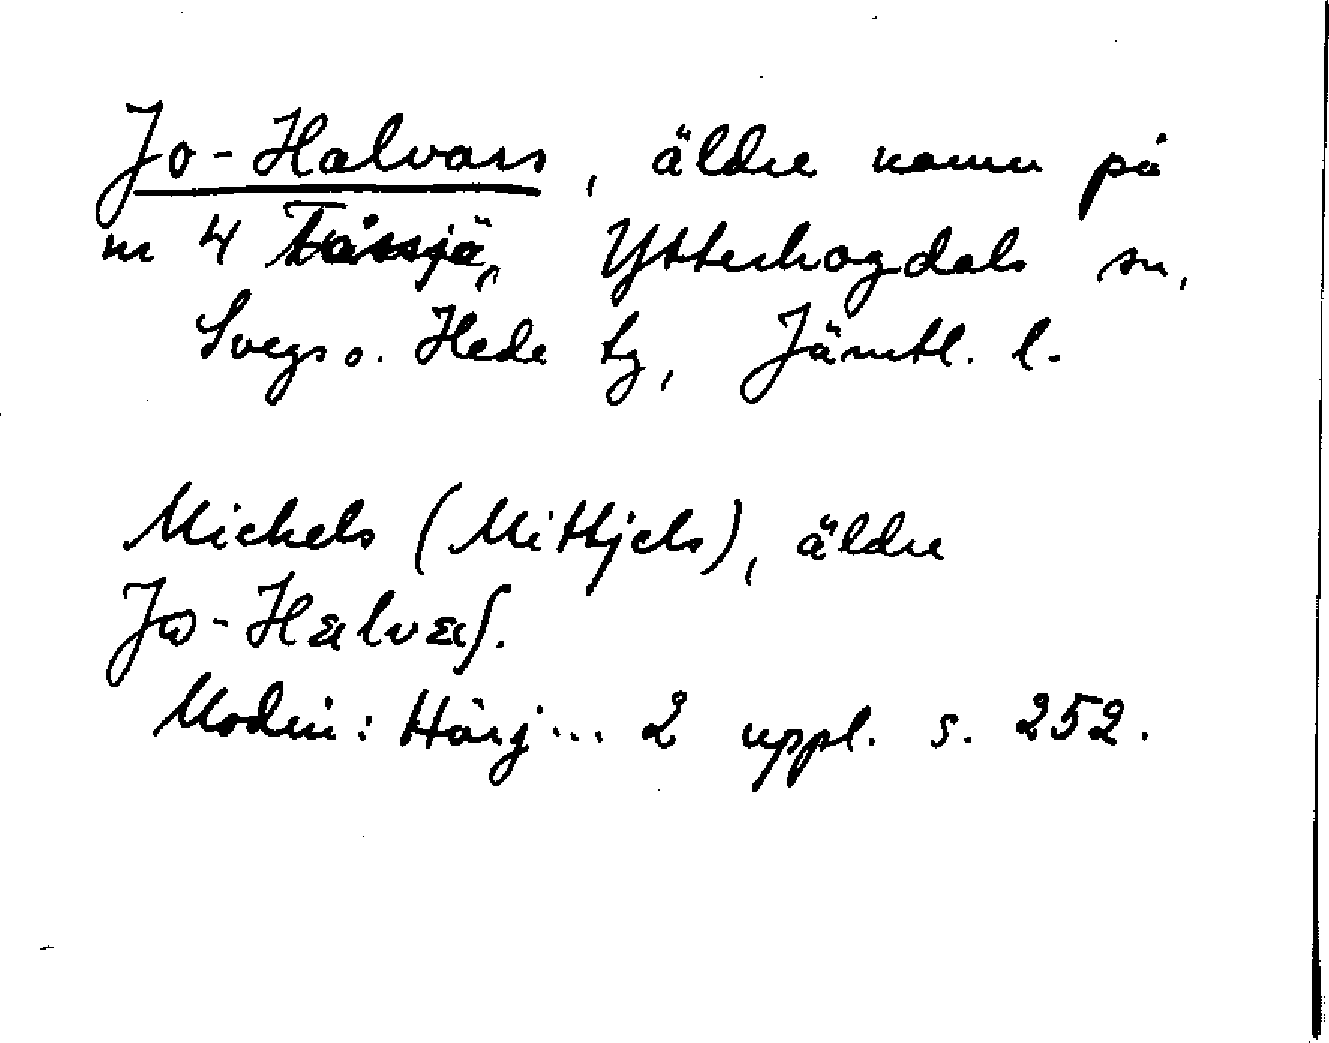 Jo-Halvars, äldre namn på
nr 4 Tåssjö, Ytterhogdals sn,
Svegs o. Hede tg, Jämtl. l.
Michels (Mittjels), äldre
Jɷ-Hɛlvɛʃ.
Modin: Härj... 2 uppl. s. 252.